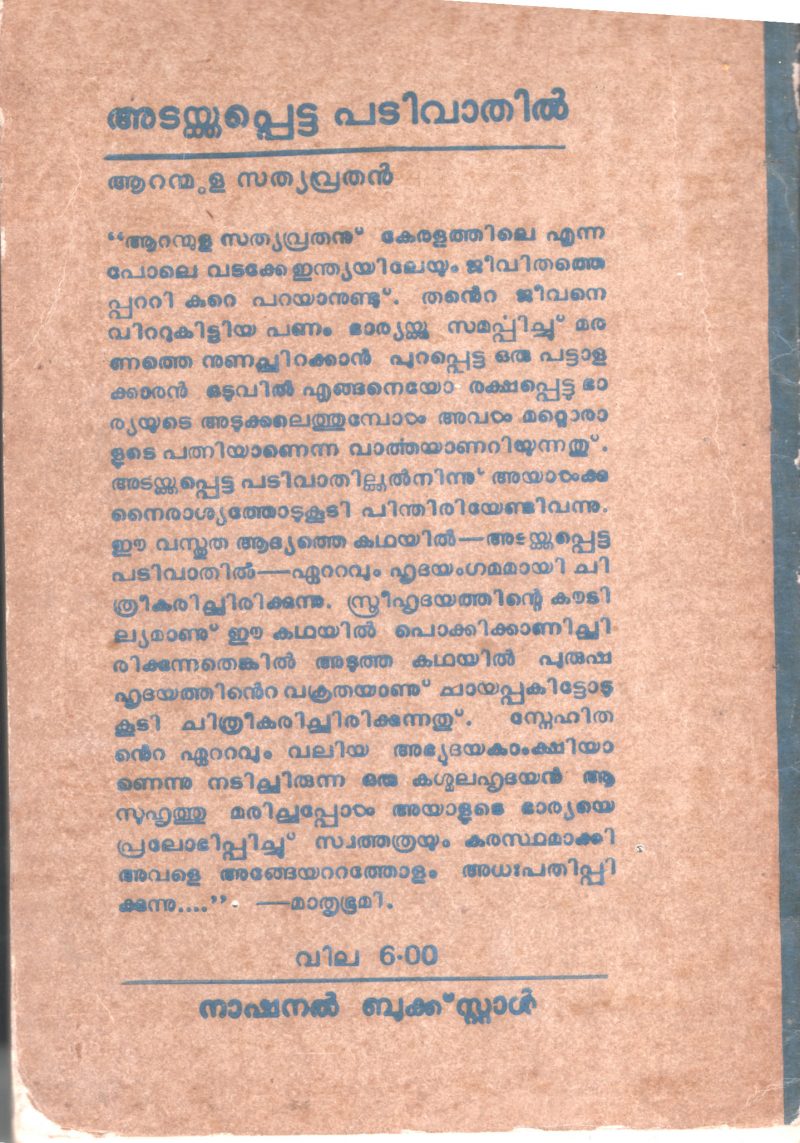 അടയ്ക്കപ്പെട്ട പടിവാതിൽ
ആറന്മുള സത്യവ്രതൻ
“ആറന്മുള സത്യവ്രതനു് കേരളത്തിലെ എന്ന
പോലെ വടക്കേ ഇന്ത്യയിലേയും ജീവിതത്തെ
പ്പററി കുറെ പറയാനുണ്ടു്. തൻെറ ജീവനെ
വിററുകിട്ടിയ പണം ഭാര്യയ്ക്കു സമർപ്പിച്ചു് മര
ണത്തെ നുണച്ചിറക്കാൻ പുറപ്പെട്ട ഒരു പട്ടാള
ക്കാരൻ ഒടുവിൽ എങ്ങനെയോ രക്ഷപ്പെട്ടു ഭാ
ര്യയുടെ അടുക്കലെത്തുമ്പോൾ അവൾ മറ്റൊരാ
ളുടെ പത്നിയാണെന്ന വാർത്തയാണറിയുന്നതു്.
അടയ്ക്കപ്പെട്ട പടിവാതില്ക്കൽനിന്നു് അയാൾക്കു
നൈരാശ്യത്തോടുകൂടി പിന്തിരിയേണ്ടിവന്നു.
ഈ വസ്തുത ആദ്യത്തെ കഥയിൽ—അടയ്ക്കപ്പെട്ട
പടിവാതിൽ—ഏററവും ഹൃദയംഗമമായി ചി
ത്രീകരിച്ചിരിക്കുന്നു. സ്ത്രീഹൃദയത്തിന്റെ കൗടി
ല്യമാണു് ഈ കഥയിൽ പൊക്കിക്കാണിച്ചി
രിക്കുന്നതെങ്കിൽ അടുത്ത കഥയിൽ പുരുഷ
ഹൃദയത്തിൻെറ വക്രതയാണു് ചായപ്പകിട്ടോടു
കൂടി ചിത്രീകരിച്ചിരിക്കുന്നതു്. സ്നേഹിത
ൻെറ ഏററവും വലിയ അഭ്യുദയകാംക്ഷിയാ
ണെന്നു നടിച്ചിരുന്ന ഒരു കശ്മലഹൃദയൻ ആ
സുഹൃത്തു മരിച്ചപ്പോൾ അയാളുടെ ഭാര്യയെ
പ്രലോഭിപ്പിച്ചു് സ്വത്തത്രയും കരസ്ഥമാക്കി
അവളെ അങ്ങേയററത്തോളം അധഃപതിപ്പി
ക്കുന്നു....”. —മാതൃഭൂമി.
വില 6·00
നാഷനൽ ബുക്ക് സ്റ്റാൾ